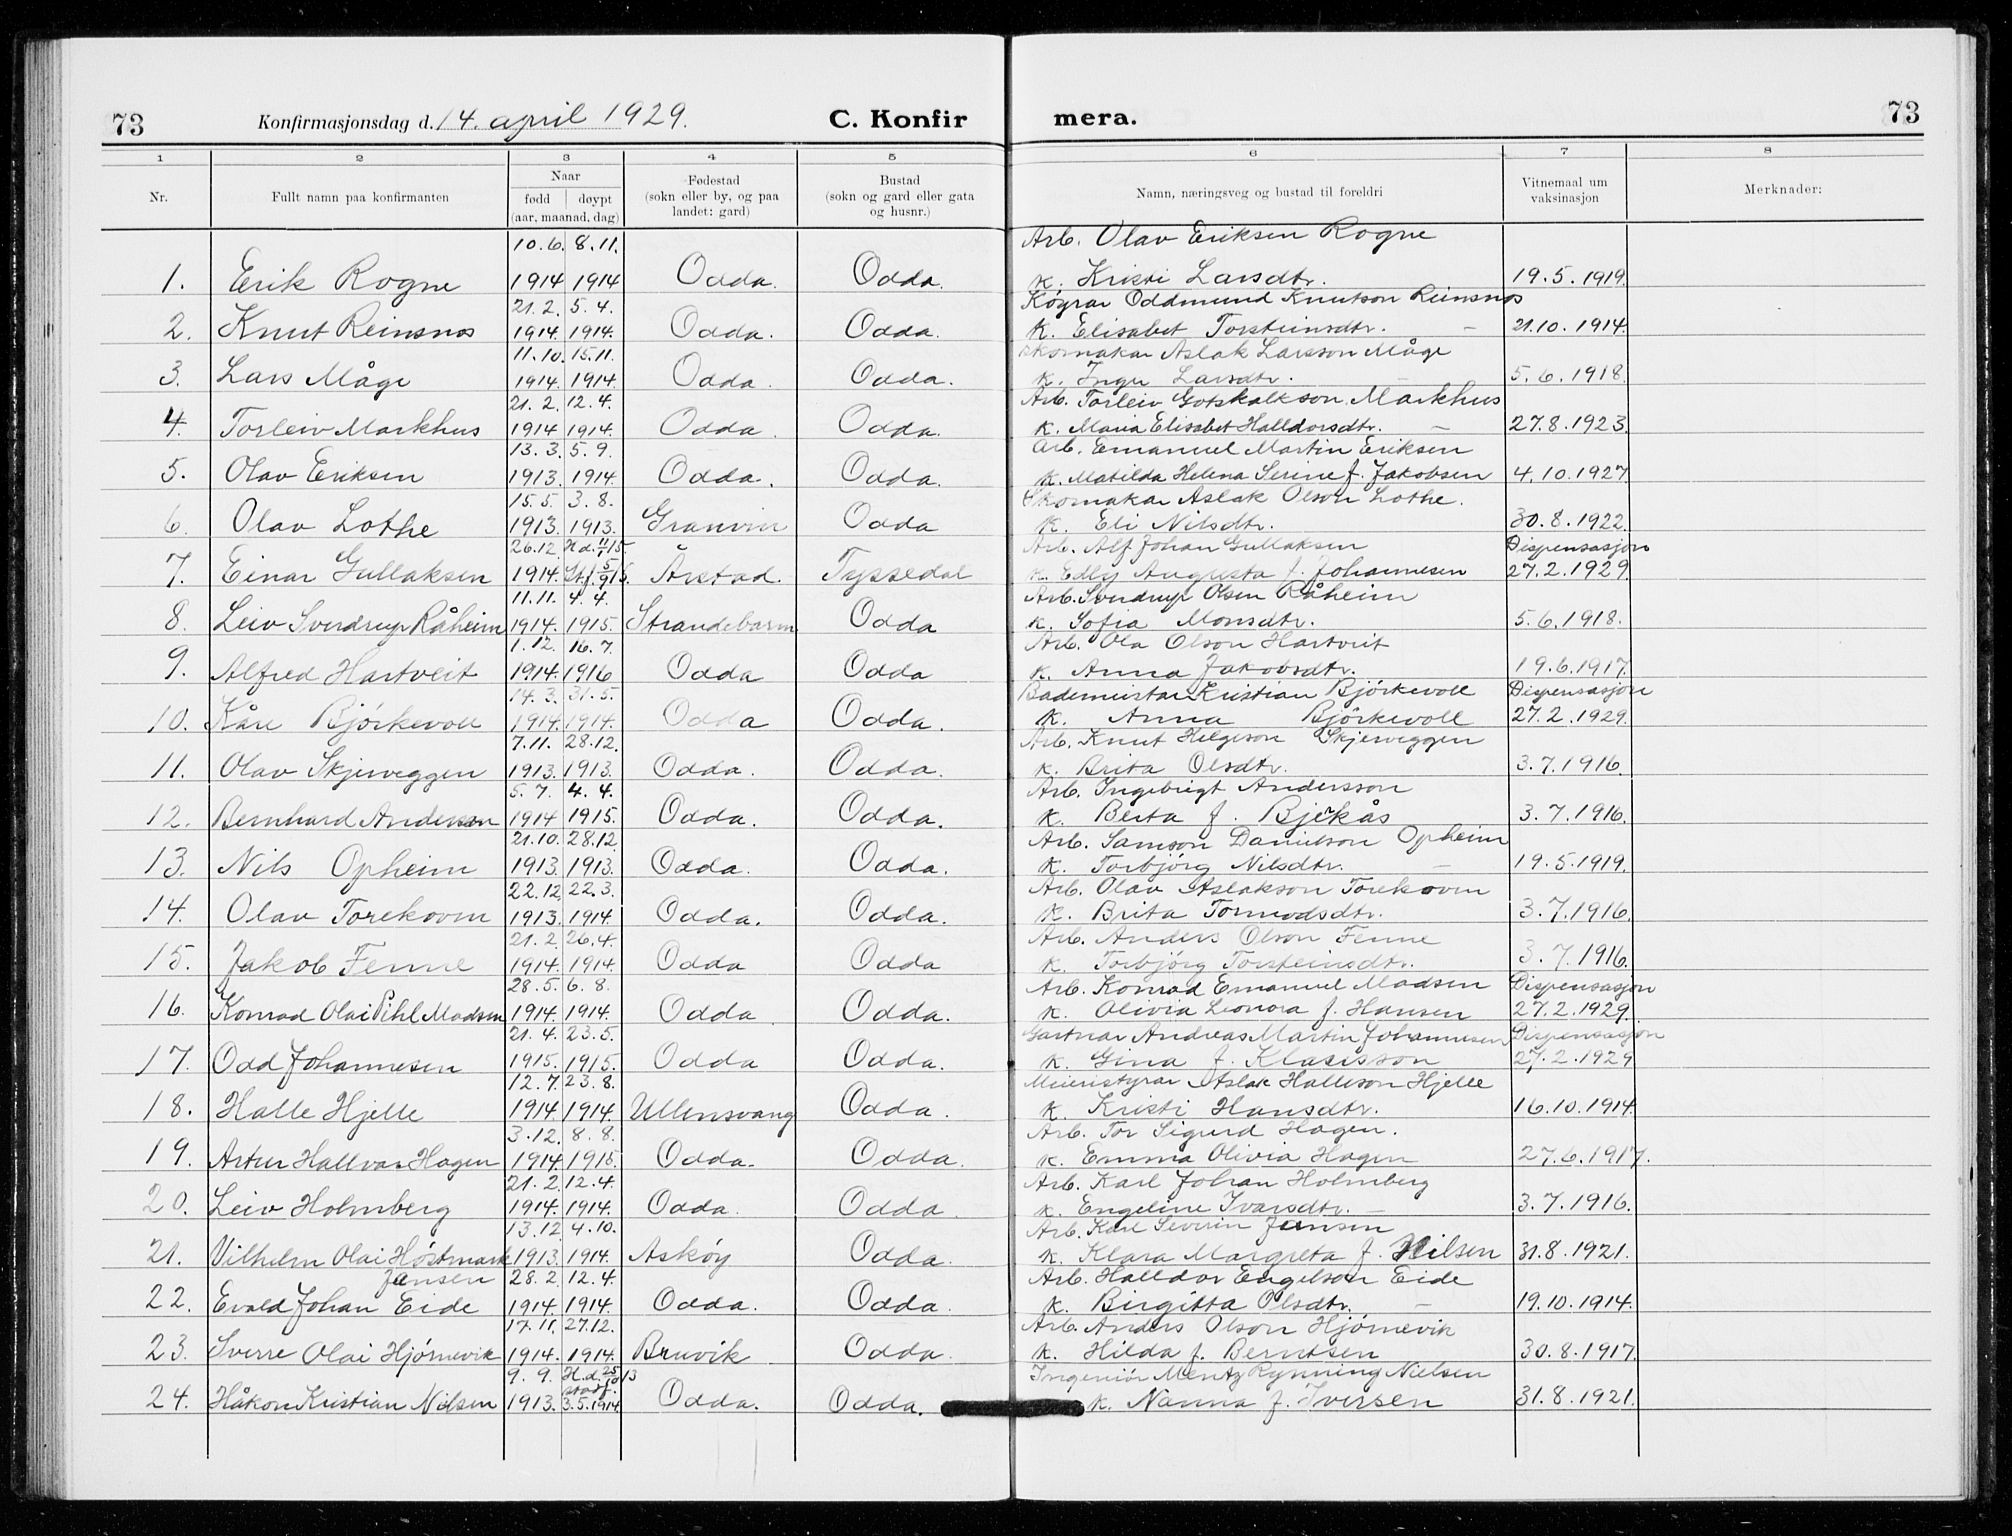 73 Konfirmasjonsdag d. 14. april 1929. C. Konfir mera. 73
1 2 3 4 5 6 7 8
Nr. Fullt namn paa konfirmanten Naar født døypt (aar, maanad, dag) Fødestad (sokn eller by, og paa landet: gard) Bustad (sokn og gard eller gata og husnr.) Namn, næringsveg og bustad til foreldri Vitnemaal um vaksinasjon Merknader:
10.6. 8.11. Arb. Olav Eriksen Rogne
1. Erik Rogne 1914 1914 Odda. Odda. K. Kristi Larsdtr. 19.5.1919.
21.2. 5.4. Køyrar Oddmund Knutson Reinsnos
2. Knut Reinsnos 1914. 1914. Odda. Odda. K. Elisabet Torsteinsdtr. — 21.10.1914.
11.10. 15.11. Skomakar Aslak Larsson Måge
3. Lars Måge 1914. 1914. Odda. Odda. K. Inga Larsdtr. 5.6.1918.
21.2. 12.4. Arb. Torleiv Gotskalkson Markhus
4. Torleiv Markhus 1914 1914. Odda Odda. K. Maria Elisabet Halldorsdtr. — 27.8.1923.
13.3. 5.9. Arb. Emanuel Martin Eriksen
5. Olav Eriksen 1913. 1914. Odda. Odda. K. Matilda Helena Serine f. Jakobsen 4.10.1927
15.5. 3.8. Skomakar Aslak Olson Lothe.
6. Olav Lothe 1913. 1913. Granvin Odda K. Eli Nilsdtr. 30.8.1922.
26.12. H.d. 11/1 15. Arb. Alf Johan Gullaksen Dispensasjon
7. Einar Gullaksen 1914. Stf. 5/9 15. Årstad. Tyssedal K. Edly Augusta f. Johannesen 27.2.1929.
11.11. 4.4. Arb. Sverdrup Olsen Råheim
8. Leiv Sverdrup Råheim 1914. 1915. Strandebarm Odda K. Sofia Monsdtr. 5.6.1918.
1.12. 16.7. Arb. Ola Olson Hartveit
9. Alfred Hartveit 1914. 1916 Odda Odda K. Anna Jakobsdtr. 19.6.1917.
14.3. 31.5. Bademeistar Kristian Bjørkevoll Dispensasjon
10. Kåre Bjørkevoll 1914. 1914. Odda Odda. K. Anna Bjørkevoll 27.2.1929.
7.11. 28.12. Arb. Knut Helgeson Skjerveggen
11. Olav Skjerveggen 1913. 1913. Odda. Odda. K. Brita Olsdtr. 3.7.1916.
5.7. 4.4. Arb. Ingebrigt Andersson
12. Bernhard Anderson 1914 1915. Odda. Odda. K. Berta f. Bjerkås 3.7.1916.
21.10. 28.12. Arb. Samson Danielson Opheim
13. Nils Opheim 1913. 1913. Odda. Odda. K. Torbjørg Nilsdtr. — 19.5.1919.
22.12. 22.3. Arb. Olav Aslakson Torekoven
14. Olav Torekoven 1913. 1914. Odda. Odda. K. Brita Tormodsdtr. 3.7.1916.
21.2. 26.4. Arb. Anders Olson Fenne
15. Jakob Fenne 1914. 1914. Odda Odda K. Torbjørg Torsteinsdtr. 3.7.1916.
28.5. 6.8. Arb. Konrad Emanuel Madsen Dispensasjon
16. Konrad Olai Pihl Madsen 1914. 1914. Odda Odda. K. Olivia Leonora f. Hansen 27.2.1929.
21.4. 23.5. Gartnar Andreas Martin Johannesen Dispensasjon
17. Odd Johannesen 1915. 1915. Odda Odda. K. Gina f. Klasisson 27.2.1929
12.7. 23.8. Meieristyrar Aslak Halleson Hjelle
18. Halle Hjelle 1914. 1914. Ullensvang Odda. K. Kristi Hansdtr. 16.10.1914.
3.12. 8.8. Arb. Tor Sigurd Hagen.
19. Artur Hallvar Hagen 1914. 1915. Odda. Odda. K. Emma Olivia Hagen 27.6.1917.
21.2. 12.4. Arb. Karl Johan Holmberg
20. Leiv Holmberg 1914. 1914. Odda. Odda K. Engeline Ivarsdtr. — 3.7.1916.
13.12. 4.10. Arb. Karl Severin Jensen
21. Vilhelm Olai Høstmark 1913. 1914. Askøy Odda. K. Klara Margreta f. Nilsen 31.8.1921.
Jensen 28.2. 12.4. Arb. Halldor Engelson Eide
22. Evald Johan Eide 1914. 1914. Odda. Odda. K. Birgitta Olsdtr. — 19.10.1914.
17.11. 27.12. Arb. Anders Olson Hjørnevik
23. Sverre Olai Hjørnevik 1914. 1914. Bruvik Odda. K. Hilda f. Berntsen 30.8.1917.
9.9. H.d. 25/10 13 Ingeniør Mentz Rynning Nielsen
24. Håkon Kristian Nilsen 1913. stadf. 3.5.1914. Odda. Odda. K. Nanna f. Iversen 31.8.1921.